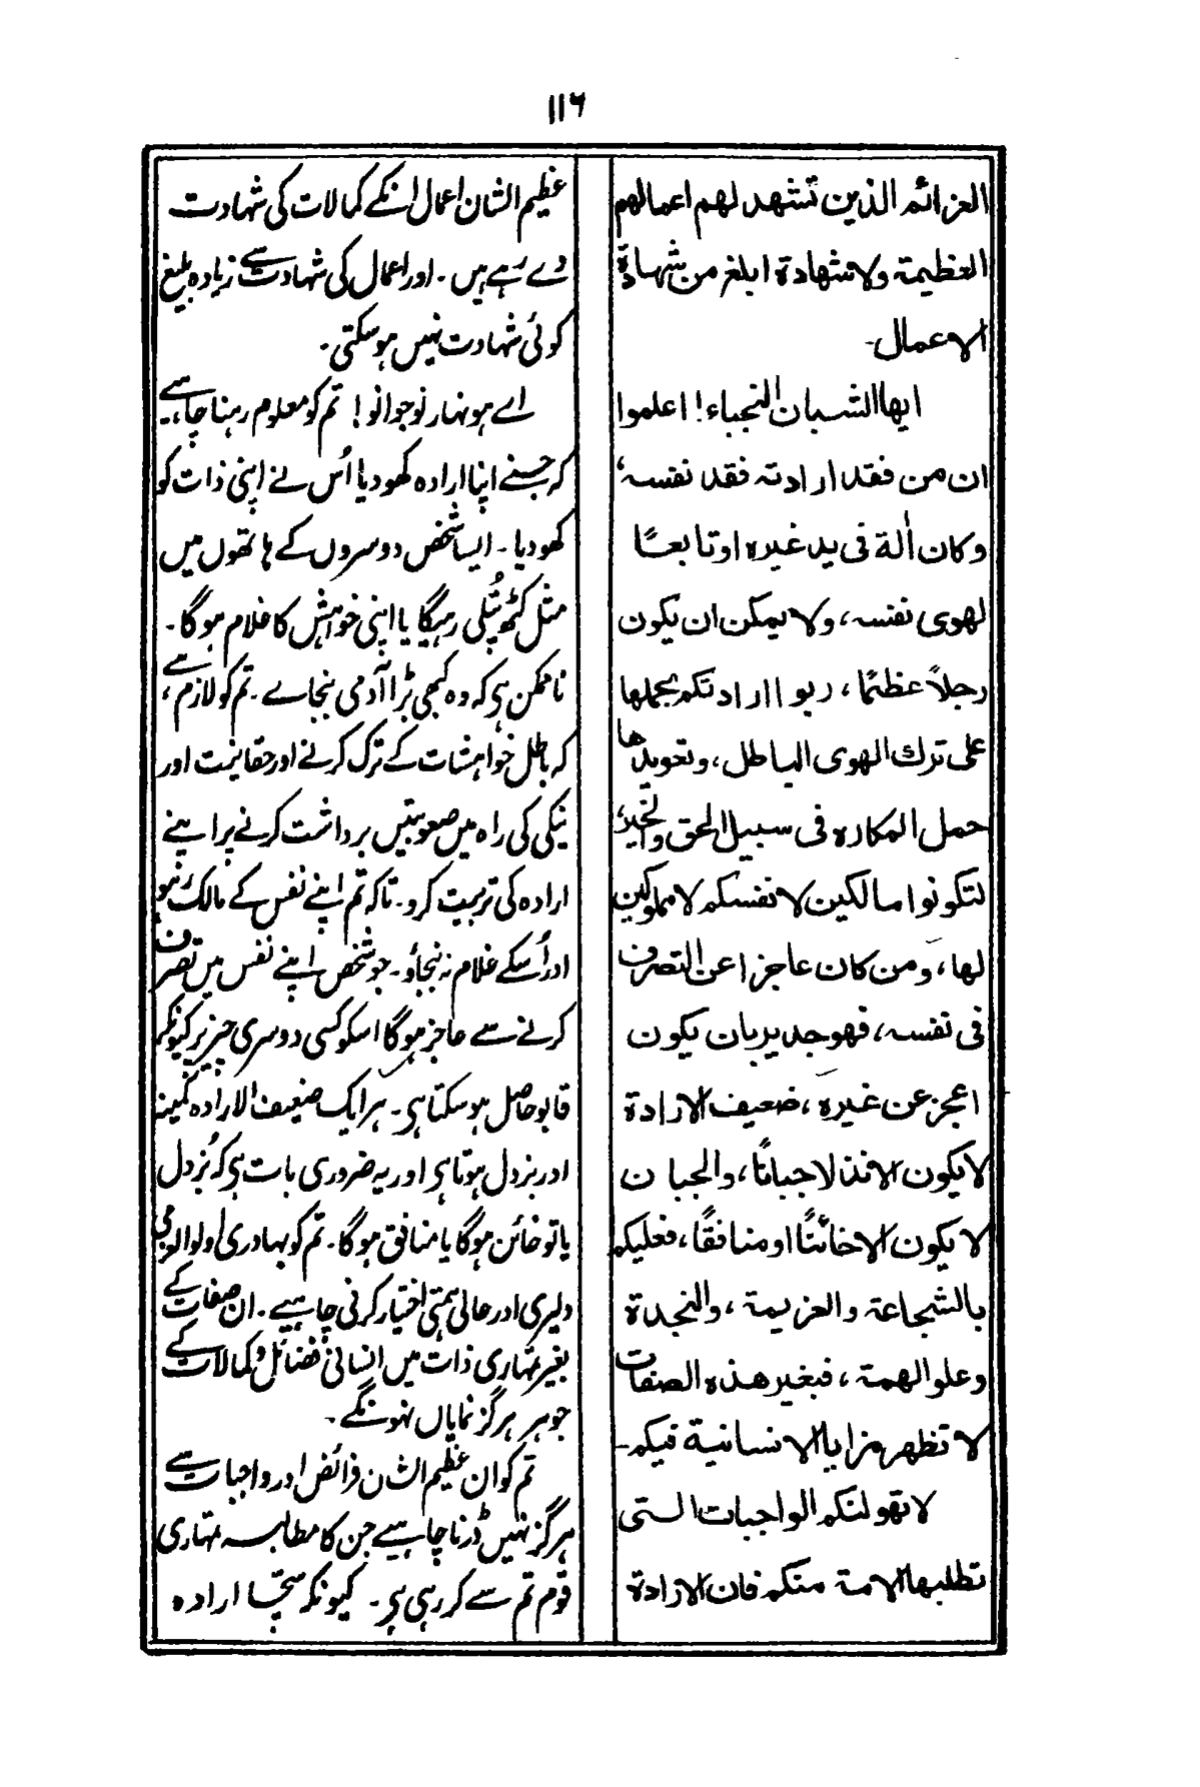 ۱۱۶
العزائم الذين تشهد لهم اعمالهم
العظيمة ولا شهادة ابلغ من شهادة
الاعمال۔
ايها الشبان النجباء! اعلموا
ان من فقد ارادته فقد نفسه،
وكان اٰلة فى يد غيره او تابعًا
لهوى نفسه، ولا يمكن ان يكون
رجلاً عظيمًا، ربوا ارادتكم بحملها
على ترك الهوى الباطل، وتعويدها
حمل المكاره فى سبيل الحق والخير،
لتكونوا مالكين لا نفسكم لا مملوكين
لها، ومن كان عاجزا عن التصرف
فى نفسه، فهو جدير بان يكون
اعجز عن غيره، ضعيف الارادة
لا يكون الا نذلا جبانًا، والجبان
لا يكون الا خائنًا او منافقًا، فعليكم
بالشجاعة والعزيمة، والنجدة
وعلو الهمة، فبغير هذه الصفات
لا تظهر مزايا الانسانية فيكم۔
لا تهولنكم الواجبات التى
تطلبها الامة منكم فان الارادة
عظیم الشان اعمال انکے کمالات کی شہادت
دے رہے ہیں۔ اور اعمال کی شہادت سے زیادہ بلیغ
کوئی شہادت نہیں ہوسکتی۔
اے ہونہار نوجوانو! تم کو معلوم رہنا چاہیے
کہ جسنے اپنا ارادہ کھودیا اُس نے اپنی ذات کو
کھودیا۔ ایسا شخص دوسروں کے ہاتھوں میں
مثل کٹھ پُتلی رہیگا یا اپنی خواہش کا غلام ہوگا۔
ناممکن ہی کہ وہ کبھی بڑا آدمی بنجاے۔ تم کو لازم ہے،
کہ باطل خواہشات کے ترک کرنے اور حقانیت اور
نیکی کی راہ میں صعوبتیں برداشت کرنے پر اپنے
ارادہ کی تربیت کرو۔ تاکہ تم اپنے نفس کے مالک رہو
اور اُسکے غلام نہ بنجاؤ۔ جو شخص اپنے نفس میں تصرف
کرنے سے عاجز ہوگا اسکو کسی دوسری چیز پر کیونکر
قابو حاصل ہوسکتا ہی۔ ہر ایک ضعیف الارادہ کمینہ
اور بزدل ہوتا ہی اور یہ ضروری بات ہی کہ بُزدل
یا تو خائن ہوگا یا منافق ہوگا۔ تم کو بہادری اولوالعزمی
دلیری اور عالی ہمتی اختیار کرنی چاہیے۔ ان صفات کے
بغیر تمہاری ذات میں انسانی فضائل و کمالات کے
جوہر ہرگز نمایاں نہونگے۔
تم کو ان عظیم الشان فرائض اور واجبات سے
ہرگز نہیں ڈرنا چاہیے جن کا مطالبہ تمہاری
قوم تم سے کر رہی ہی۔ کیونکہ سچا ارادہ